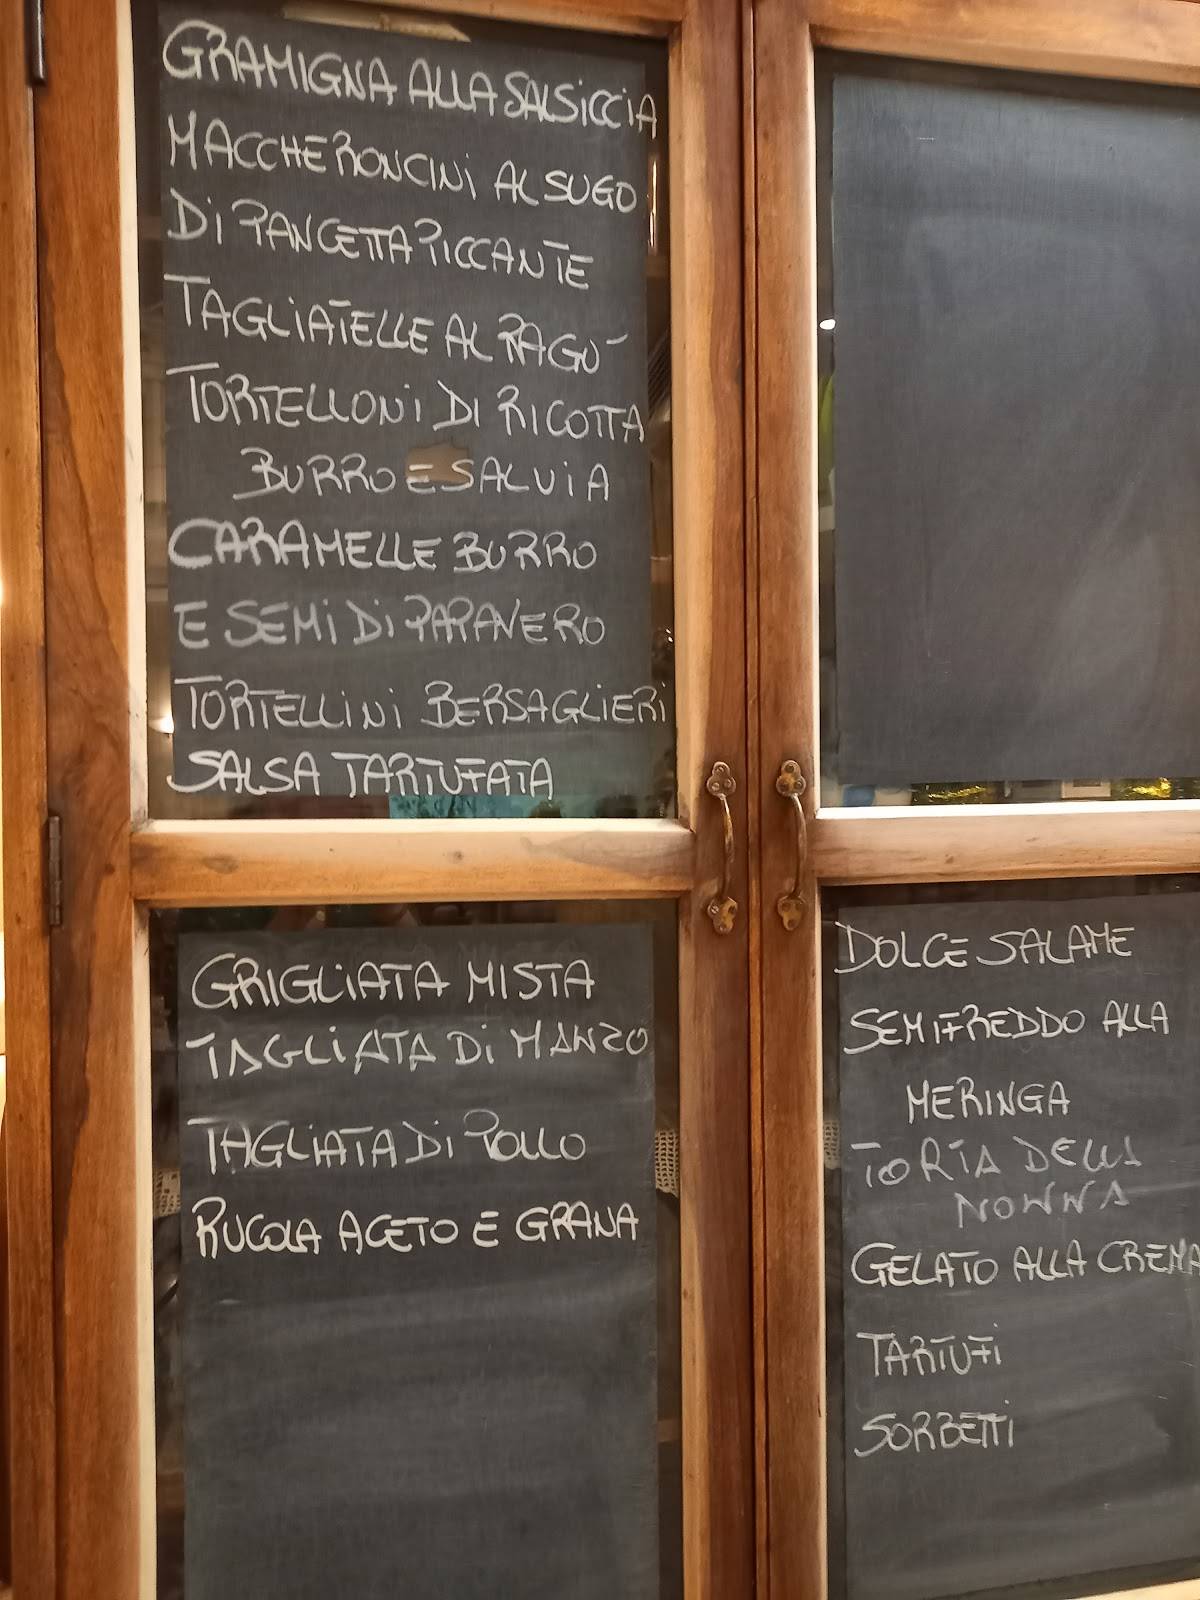 GRAMIGNA ALLA SALSICCIA
MACCHERONCINI AL SUGO
Di PANCETTA PICCANTE
TAGLIATELLE AL RAGU´
TORTELLONi DI RICOTTA
BURRO E SALVIA
CARAMELLE BURRO
E SEMi Di PAPAVERO
TORTELLINI BERSAGLIERI
SALSA TARTUFATA
GRIGLIATA MISTA
TAGLIATA Di MANZO
TAGLIATA Di POLLO
RUCOLA ACETO E GRANA
DOLCE SALAME
SEMIFREDDO ALLA
MERINGA
TORTA DELLA
NONNA
GELATO ALLA CREMA
TARTUFi
SORBETTi